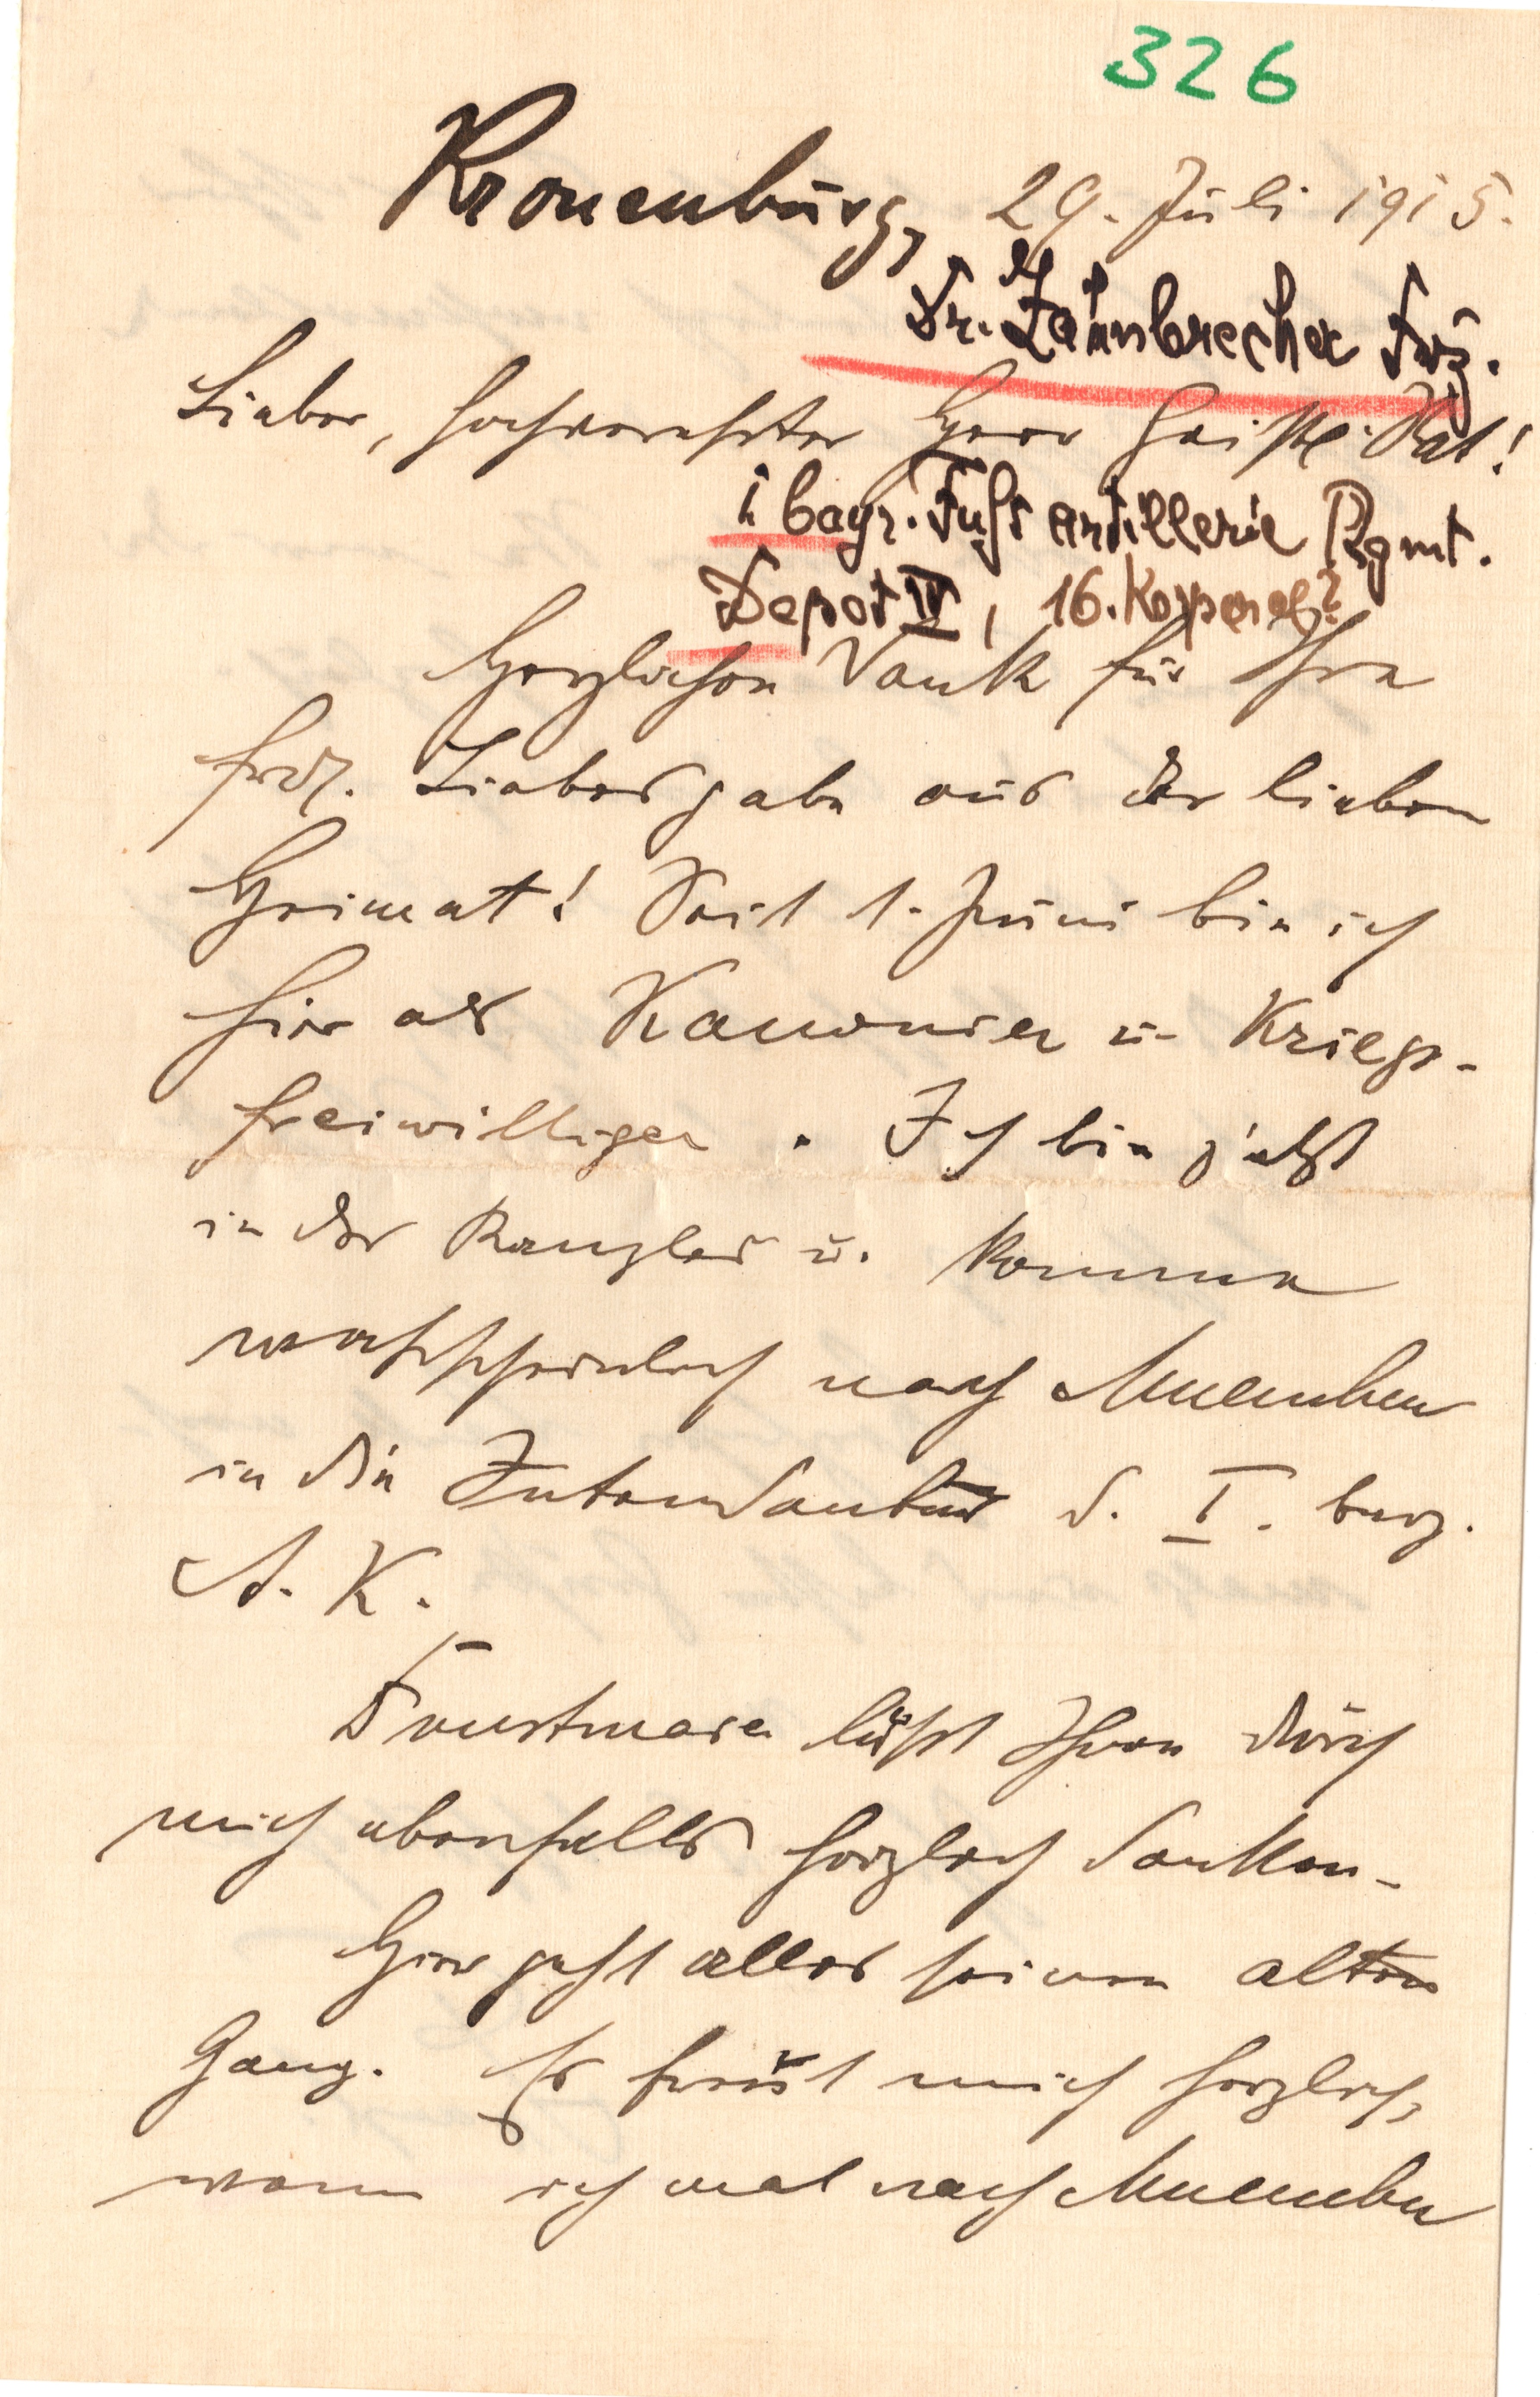 326
Kronenburg, 29. Juli 1915.
Dr. Zahnbrecher Frz.
Lieber, hochverehrter Herr Geistl. Rat!
i bayr. Fußartillerie Rgmt.
Depot IV, 16. Korporal?
Herzlichen Dank für Ihre
frdl. Liebesgabe aus der lieben
Heimat! Seit 1. Juni bin ich
hier als Kanonier u. Kriegs-
freiwilliger. Ich bin jetzt
in der Kanzlei u. komme
wahrscheinlich nach Muenchen
in die Intendantur d. I. bay.
A. K.
läßt Ihnen durch
mich ebenfalls herzlich danken.
Hier geht alles seinen alten
Gang. Es freut mich herzlich,
wenn ich mal nach Muenchen